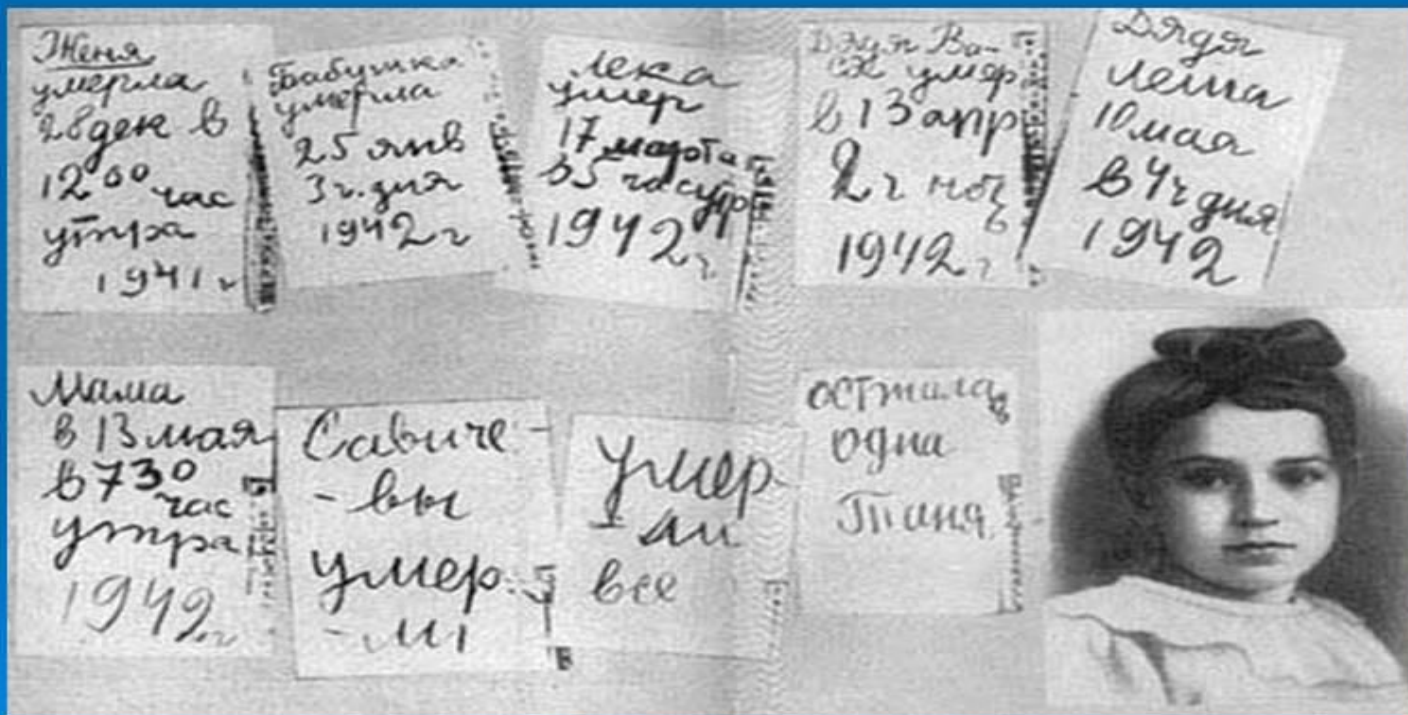 Женя
умерла
28 дек в
12 00 час
утра
1941 г
Бабушка
умерла
25 янв
3 ч. дня
1942 г
Лека
умер
17 марта
в 5 час утр
1942 г
Дядя Ва-
ся умер
в 13 апр
2 ч ночь
1942 г
Дядя
Леша
10 мая
в 4 ч дня
1942
Мама
в 13 мая
в 7 30
час
утра
1942 г
Савиче-
-вы
умер-
-ли
Умер
-ли
все
Осталась
одна
Таня